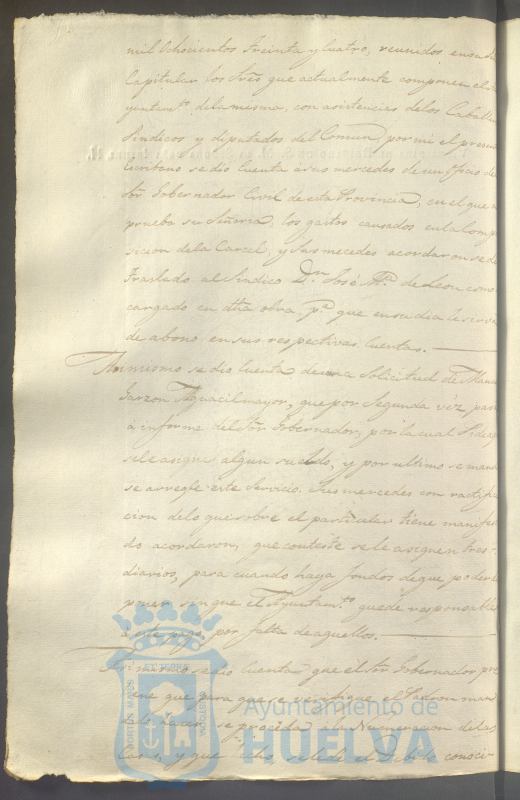 mil Ochocientos Treinta y Cuatro, reunidos en su
Capitular los Sres que actualmente componen el
yuntamto dela misma, con asistencias delos Caballe
Sindicos y diputados del Comun, por mi el presen
Escribano se dio Cuenta a sus mercedes de un Oficio de
Sor Gobernador Civil de esta Provincia, en el que
prueba su Señoria, los gastos causados en la Comp
sicion dela Carcel, y sus mecedes acordaron se de
traslado al Sindico Dn José Ma de Leon como
cargado en dha obra, pa que en su dia le sirva
de abono en sus respectivas Cuentas.
Asimismo se dio Cuenta de una Solicitud de Manu
Garzon Alguacil mayor, que por Segunda véz pasa
à informe del Sor Gobernador, por la cual Pide
se le asigne algun sueldo, y por ultimo se manda
se arregle este Servicio. Sus mercedes con ractifica
cion delo que sobre el particular tiene manifes
do acordaron, que conteste se le asignen tres
diarios, para cuando haya fondos de que poder
poner sin que el Ayuntamto quede responsable
à este pago, por falta de aquellos.
Asimismo se dio Cuenta que el Sor Gobernador pre
viene que para que se rectifique el Padron man
dado hacer, se proceda a la Numeracion delas
Casas, y que dho se le dé el Debido conoci
PORTUS MARIS
ET TERRE
CUSTODIA
Ayuntamiento de
HUELVA